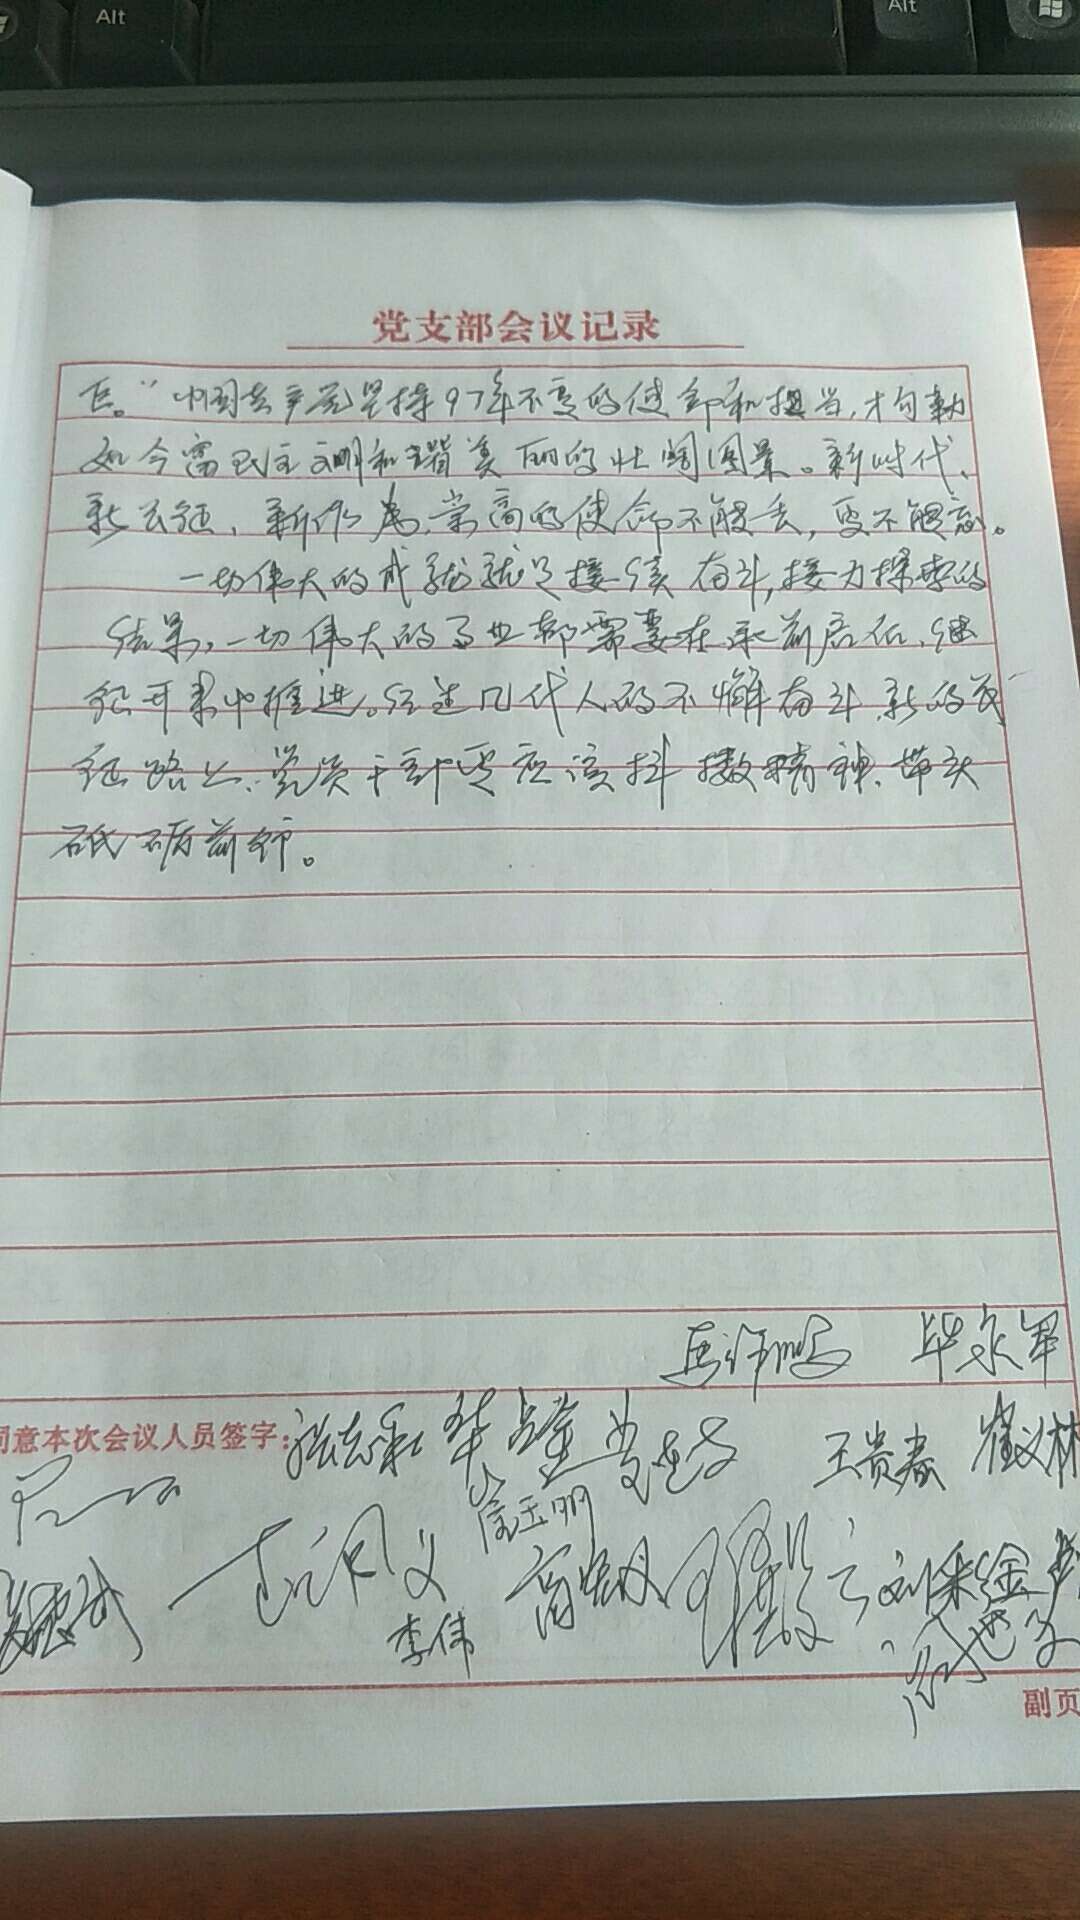 Alt
Alt
党支部会议记录
巨。”中国共产党坚持97年不变的使命和担当,才勾勒
如今富民主文明和谐美丽的壮阔图景。新时代、
新长征、新作为,崇高的使命不能丢,更不能忘。
一切伟大的成就就是接续奋斗,接力探索的
结果,一切伟大的事业都需要在承前启后、继
往开来中推进。经过几代人的不懈奋斗,新的长
征路上,党员干部更应该抖擞精神、带头
砥砺前行。
毕永军
同意本次会议人员签字:
王贵春 崔义林
徐玉明
李伟
刘采金
副页